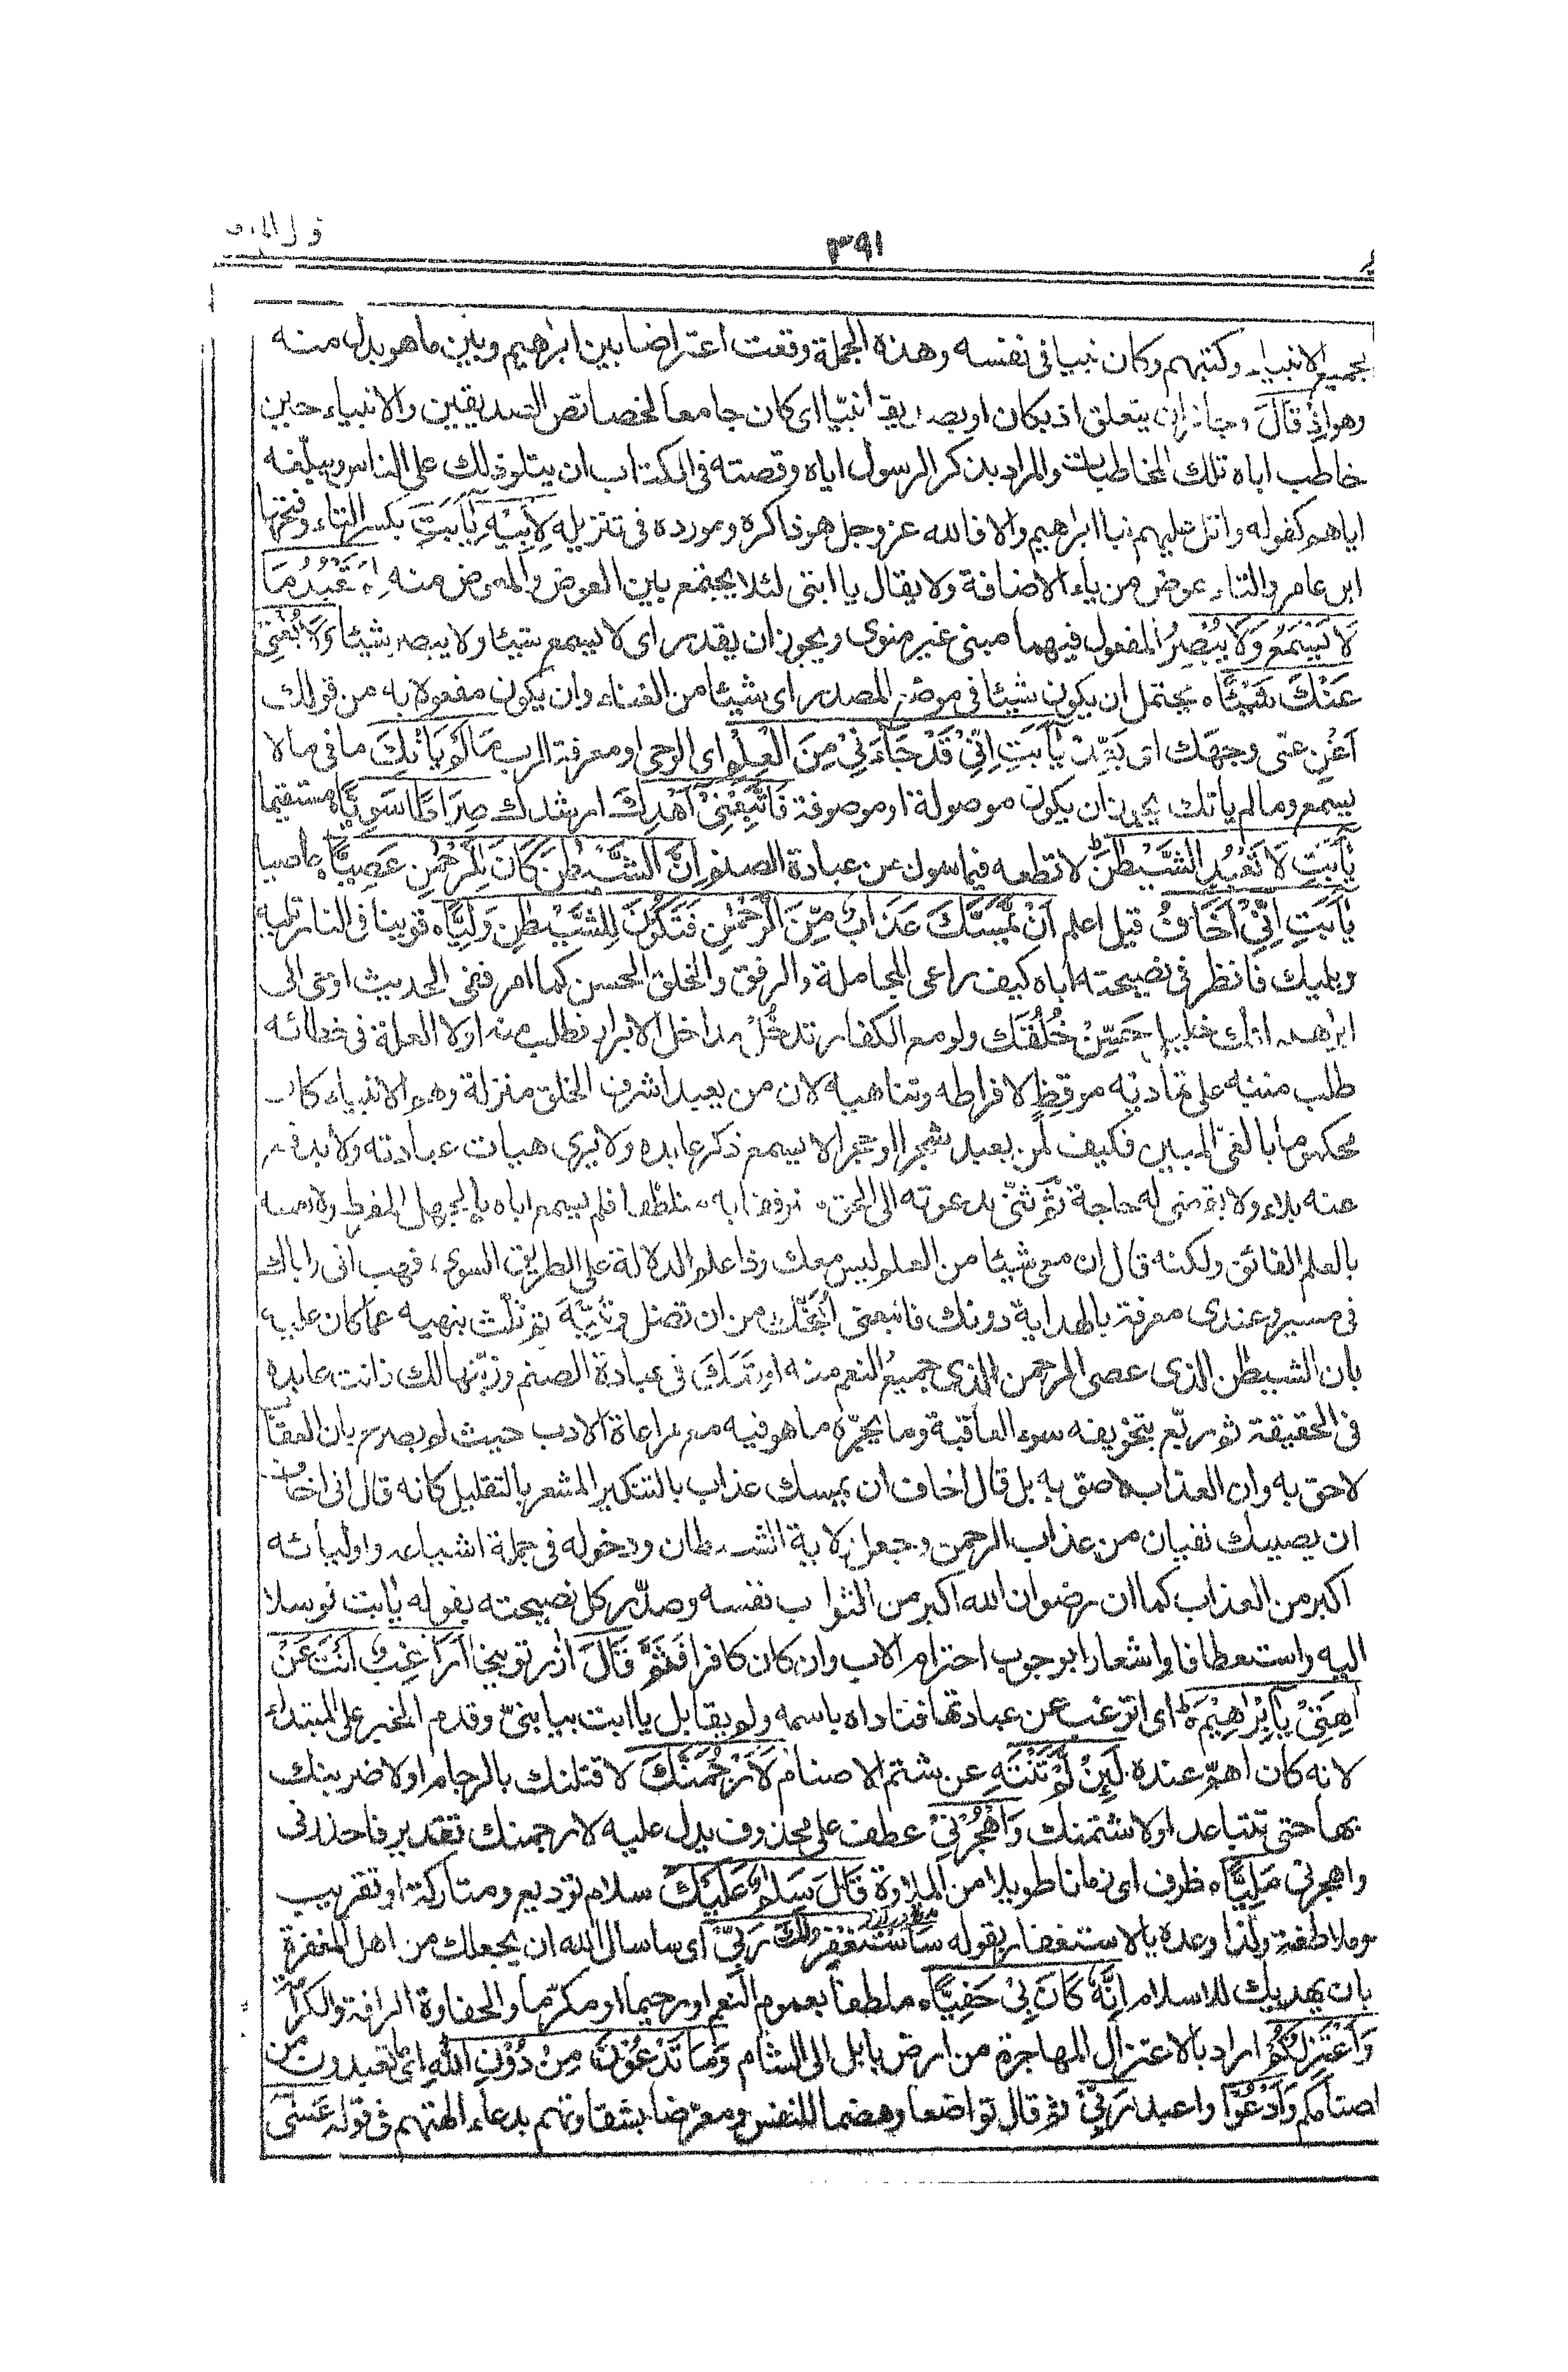 ٣٩١
بجميع الانبياء وكتبهم وكان نبيا فى نفسه وهذه الجملة وقعت اعتراضا بين ابرهيم وبين ما هو بدل منه
وهو اذ قال وجاز ان يتعلق اذ بكان او بصديقا نبيّا اى كان جامعا لخصائص الصديقين والانبياء حين
خاطب اباه تلك المخاطبات والمراد بذكر الرسول اياه وقصته فى الكتاب ان يتلو ذلك على الناس ويبلّغه
اياهم كقوله واتل عليهم نبا ابراهيم والا فالله عز وجل هو ذاكره ومورده فى تنزيله لِاَبِيْهِ يٰٓاَبَتِ بكسر التاء وفتحها
ابن عامر والتاء عوض من ياء الاضافة ولا يقال يا ابتى لئلا يجتمع بين العوض والمعوض منه لِمَ تَعْبُدُ مَا
لَا يَسْمَعُ وَلَا يُبْصِرُ المفعول فيهما مبنى غير منوى ويجوز ان يقدر اى لا يسمع شيئا ولا يبصر شيئا وَلَا يُغْنِىْ
عَنْكَ شَيْئًا ه يحتمل ان يكون شيئا فى موضع المصدر اى شيئا من الغناء وان يكون مفعولا به من قولك
اَغْنِ عنّى وجهك اى بَعِّدْ يٰٓاَبَتِ اِنِّىْ قَدْ جَآءَنِىْ مِنَ الْعِلْمِ اى الوحى او معرفة الرب مَا لَمْ يَاْتِكَ ما فى ما لا
يسمع وما لم ياتك يجوز ان يكون موصولة او موصوفة فَاتَّبِعْنِىْٓ اَهْدِكَ ارشدك صِرَاطًا سَوِيًّا ه مستقيما
يٰٓاَبَتِ لَا تَعْبُدِ الشَّيْطٰنَ ط لا تطعه فيما سول من عبادة الصنم اِنَّ الشَّيْطٰنَ كَانَ لِلرَّحْمٰنِ عَصِيًّا عاصيا
يٰٓاَبَتِ اِنِّىْٓ اَخَافُ قيل اعلم اَنْ يَّمَسَّكَ عَذَابٌ مِّنَ الرَّحْمٰنِ فَتَكُوْنَ لِلشَّيْطٰنِ وَلِيًّا ه قرينا فى النار تليه
ويليك فانظر فى نصيحته اباه كيف راعى المجاملة والرفق والخلق الحسن كما امر ففى الحديث اوحى الى
ابرٰهيم انك خليلى حَسِّنْ خُلُقَك ولو مع الكفار تدخُلْ مداخل الابرار فطلب منه اولا العلة فى خطائه
طلب منبه على تماديه موقظ لافراطه وتناهيه لان من يعبد اشرف الخلق منزلة وهم الانبياء كان
محكوما بالغىّ المبين فكيف لمن يعبد شجرا او حجرا لا يسمع ذكر عابده ولا يرى هيات عبادته ولا يدفع
عنه بلاء ولا يقضى له حاجة ثم ثنّى بدعوته الى الحق مترفقا به متلطفا فلم يسم اباه بالجهل المفرط ولا نفسه
بالعلم الفائق ولكنه قال ان معى شيئا من العلم ليس معك وذا علم الدلالة على الطريق السوى، فهب انى واياك
فى مسير وعندى معرفة بالهداية دونك فاتبعنى اُنجّك من ان تضل وتَتِيْه ثم ثلّث بنهيه عما كان عليه
بان الشيطٰن الذى عصى الرحمن الذى جميع النعم منه اوقعك فى عبادة الصنم وزيّنها لك فانت عابده
فى الحقيقة ثم ربّع بتخويفه سوء العاقبة وما يجرّه ما هو فيه مع مراعاة الادب حيث لم يصرح بان العقاب
لاحق به وان العذاب لاصق به بل قال اخاف ان يمسك عذاب بالتنكير المشعر بالتقليل كانه قال انى اخاف
ان يصيبك نفيان من عذاب الرحمن وجعل ولاية الشيطان ودخوله فى جملة اشياعه واوليائه
اكبر من العذاب كما ان رضوان الله اكبر من الثواب نفسه وصدّر كل نصيحته بقوله يٰابت توسلا
اليه واستعطافا واشعارا بوجوب احترام الاب وان كان كافرا فثَمَّ قَالَ اٰزر توبيخا اَرَاغِبٌ اَنْتَ عَنْ
اٰلِهَتِىْ يٰٓاِبْرٰهِيْمُ ج اى اترغب عن عبادتها فناداه باسمه ولم يقابل يا ابت بيا بنىّ وقدم الخبر على المبتدا
لانه كان اهمّ عنده لَئِنْ لَّمْ تَنْتَهِ عن شتم الاصنام لَاَرْجُمَنَّكَ لاقتلنك بالرجام او لاضربنك
بها حتى تتباعد او لاشتمنك وَاهْجُرْنِىْ عطف على محذوف يدل عليه لارجمنك تقديره فاحذرنى
واهجرنى مَلِيًّا ه ظرف اى زمانا طويلا من الملاوة قَالَ سَلٰمٌ عَلَيْكَ سلام توديع ومتاركة او تقريب
وملاطفة ولذا وعده بالاستغفار بقوله سَاَسْتَغْفِرُ لَكَ رَبِّىْ اى ساسال الله ان يجعلك من اهل المغفرة
بان يهديك للاسلام اِنَّهٗ كَانَ بِىْ حَفِيًّا ه ملطفا بعموم النعم او رحيما او مكرّما والحفاوة الرافة والكرامة
وَاَعْتَزِلُكُمْ اراد بالاعتزال المهاجرة من ارض بابل الى الشام وَمَا تَدْعُوْنَ مِنْ دُوْنِ اللّٰهِ اى ما تعبدون من
اصنامكم وَاَدْعُوْا واعبد رَبِّىْ ثم قال تواضعا وهضما للنفس ومعرّضا بشقاوتهم بدعاء الهتهم فى قوله عَسٰٓى